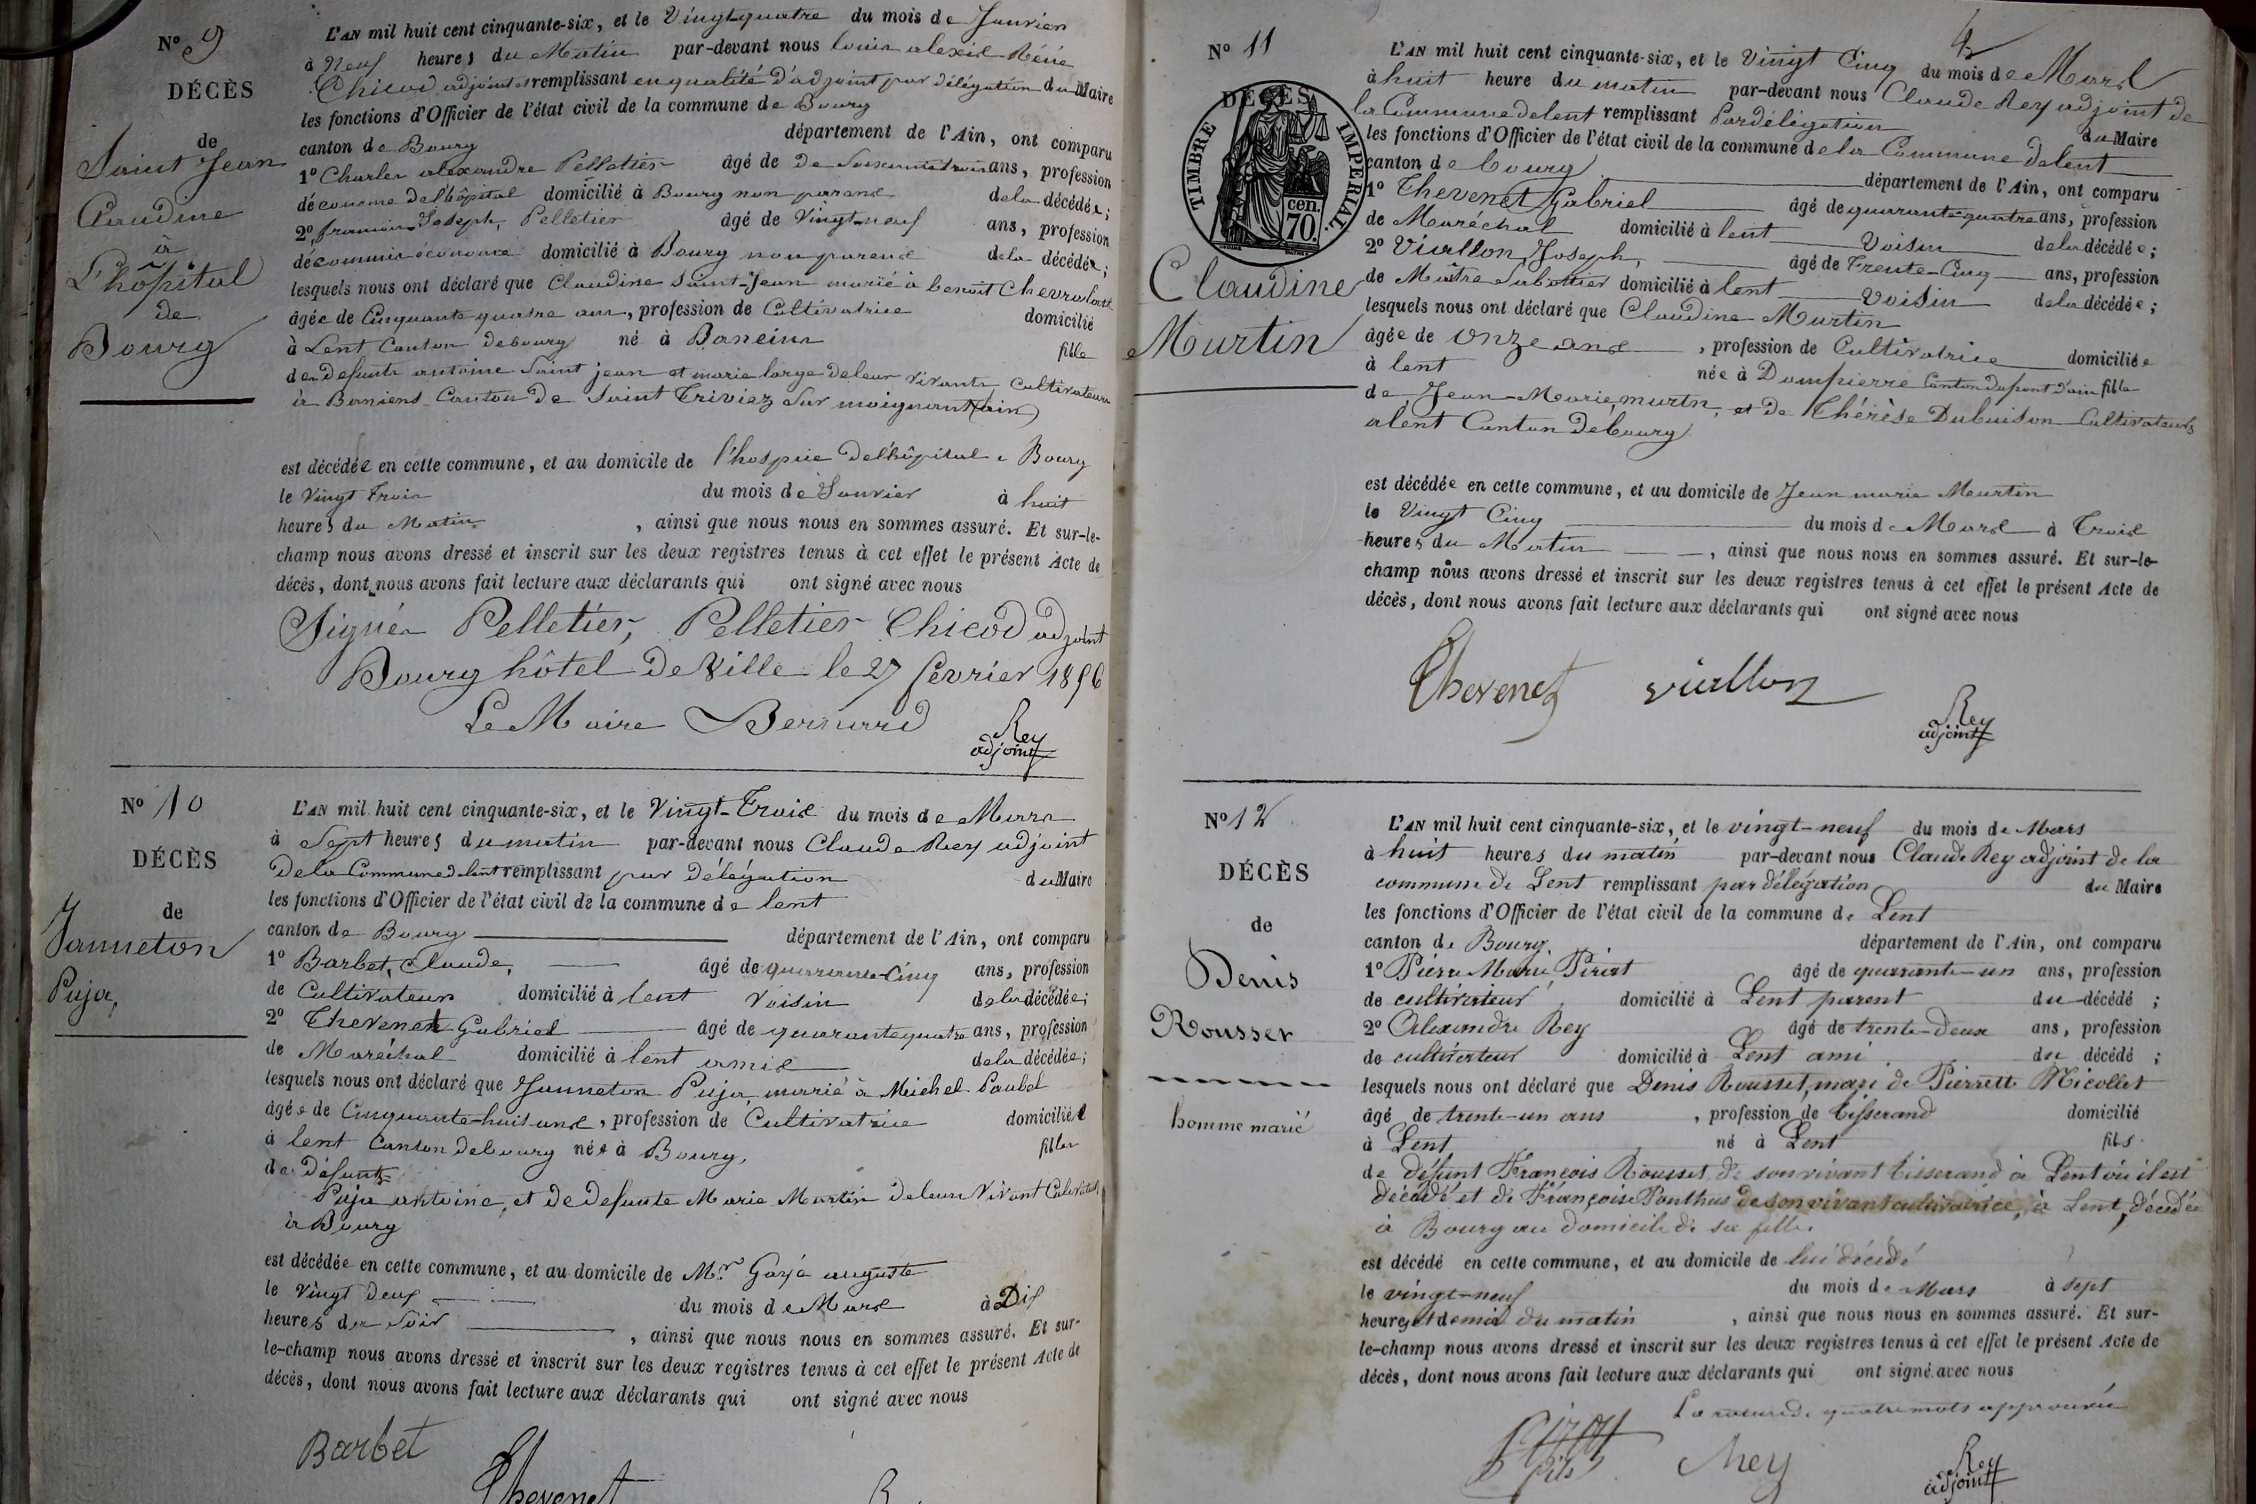 N° 9
DÉCÈS
de
Saint Jean
Claudine
à
L'hôpital
de
Bourg
L'AN mil huit cent cinquante-six, et le Vingt quatre du mois de Janvier
à Neuf heures du Matin par-devant nous louis alexis Réné
Chicod adjoint remplissant en qualité d'adjoint par délégation du Maire
les fonctions d'Officier de l'état civil de la commune de Bourg
canton de Bourg département de l'Ain, ont comparu
1° Charles alexandre Pelletier âgé de de Soixante trois ans, profession
d'économe de l'hôpital domicilié à Bourg non parent de la décédée;
2° françois Joseph, Pelletier âgé de Vingt-neuf ans, profession
de commis économe domicilié à Bourg non parent de la décédée;
lesquels nous ont déclaré que Claudine Saint-Jean marié à benoit
âgée de Cinquante quatre ans, profession de Cultivatrice domicilié
à Lent Canton de bourg né à Baneins fille
des defunts antoine Saint jean et marie large de leur vivants Cultivateurs
à Baneins Canton de Saint Triviez Sur moignans (ain)
est décédée en cette commune, et au domicile de l'hospice de l'hôpital à Bourg
le Vingt Trois du mois de Janvier à huit
heures du Matin, ainsi que nous nous en sommes assuré. Et sur-le-
champ nous avons dressé et inscrit sur les deux registres tenus à cet effet le présent Acte de
décès, dont nous avons fait lecture aux déclarants qui ont signé avec nous
Signés Pelletier, Pelletier Chicod adjoint
Bourg hôtel de Ville le 27 février 1856
Le Maire Bernard
Rey
adjoint
N° 10
DÉCÈS
de
Janneton
Puja,
L'AN mil huit cent cinquante-six, et le Vingt-Trois du mois de Mars
à Sept heures du matin par-devant nous Claude Rey adjoint
De la Commune de lent remplissant par Délégation du Maire
les fonctions d'Officier de l'état civil de la commune de lent
canton de Bourg département de l'Ain, ont comparu
1° Barbet, Claude, âgé de quarante-Cinq ans, profession
de Cultivateur domicilié à lent Voisin de la décédée;
2° Thevenet Gabriel âgé de quarante quatre ans, profession
de Maréchal domicilié à lent amis de la décédée;
lesquels nous ont déclaré que Janneton Puja, marié à Michel
âgée de Cinquante-huit ans, profession de Cultivatrice domiciliée
à lent Canton de bourg née à Bourg, fille
de Défunts
Puja antoine, et de defunte Marie Martin de leur Vivant
à Bourg
est décédée en cette commune, et au domicile de Mr. Goyà auguste
le Vingt Deux du mois de Mars à Dix
heures du Soir, ainsi que nous nous en sommes assuré. Et sur-
le-champ nous avons dressé et inscrit sur les deux registres tenus à cet effet le présent Acte de
décès, dont nous avons fait lecture aux déclarants qui ont signé avec nous
Barbet
Thevenet
N° 11
DÉCÈS
TIMBRE IMPÉRIAL.
cen.
70.
Claudine
Murtin
L'AN mil huit cent cinquante-six, et le Vingt Cinq du mois de Mars
à huit heure du matin par-devant nous Claude Rey adjoint de
la Commune de lent remplissant Par délégation du Maire
les fonctions d'Officier de l'état civil de la commune de la Commune de lent
canton de bourg département de l'Ain, ont comparu
1° Thevenet Gabriel âgé de quarante-quatre ans, profession
de Maréchal domicilié à lent Voisin de la décédée;
2° Viallon, Joseph, âgé de Trente-Cinq ans, profession
de Maitre Sabottier domicilié à lent Voisin de la décédée;
lesquels nous ont déclaré que Claudine Murtin
âgée de onze ans, profession de Cultivatrice domiciliée
à lent née à Dompierre Canton du pont d'ain fille
de Jean-Marie, murtn, et de Thérèse Dubuison Cultivateurs
a lent Canton de bourg
est décédée en cette commune, et au domicile de Jean marie Meurtin
le Vingt Cinq du mois de Mars à Trois
heures du Matin, ainsi que nous nous en sommes assuré. Et sur-le-
champ nous avons dressé et inscrit sur les deux registres tenus à cet effet le présent Acte de
décès, dont nous avons fait lecture aux déclarants qui ont signé avec nous
Thevenet viallon
Rey
adjoint
N° 12
DÉCÈS
de
Denis
Rousset
homme marié
L'AN mil huit cent cinquante-six, et le vingt-neuf du mois de Mars
à huit heures du matin par-devant nous Claude Rey adjoint de la
commune de Lent remplissant par délégation du Maire
les fonctions d'Officier de l'état civil de la commune de Lent
canton de Bourg département de l'Ain, ont comparu
1° Pierre Marie Pirat âgé de quarante-un ans, profession
de cultivateur domicilié à Lent parent du décédé;
2° Alexandre Rey âgé de trente-deux ans, profession
de cultivateur domicilié à Lent ami du décédé;
lesquels nous ont déclaré que Denis Rousset, mari de Pierrette Nicollet
âgé de trente-un ans, profession de tisserand domicilié
à Lent né à Lent fils
de défunt François Rousset de son vivant tisserand à Lent où il est
décédé et de Françoise Ponthus de son vivant cultivatrice, à Lent, décédée
à Bourg au domicile de sa fille.
est décédé en cette commune, et au domicile de lui décédé
le vingt-neuf du mois de Mars à sept
heures et demie du matin, ainsi que nous nous en sommes assuré. Et sur-
le-champ nous avons dressé et inscrit sur les deux registres tenus à cet effet le présent Acte de
décès, dont nous avons fait lecture aux déclarants qui ont signé avec nous
La rature de quatre mots approuvée
fils Rey
Rey
adjoint